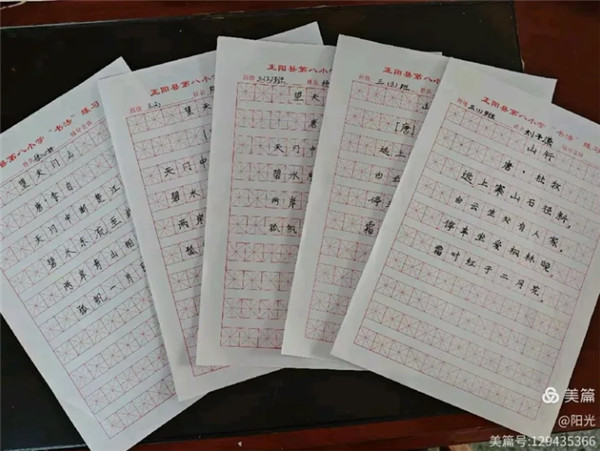 县第八小学“书法”练习
望天门山
唐·李白
天门中断楚江
碧水东流至
两岸青山相
孤帆一片日
正阳县第八小学
班级
望天
天门中
碧水
两岸
孤
正阳县第八小学
班级
望天
唐
天门中
碧水
两岸
孤帆
正阳县第八小
班级 三(3)班
山
唐
远上
白云
停
霜
正阳县第八小学“书法”练习
山行
唐·杜牧
远上寒山石径斜,
白云生处有人家。
停车坐爱枫林晚,
霜叶红于二月花。
美篇
@阳光
美篇号:129435366